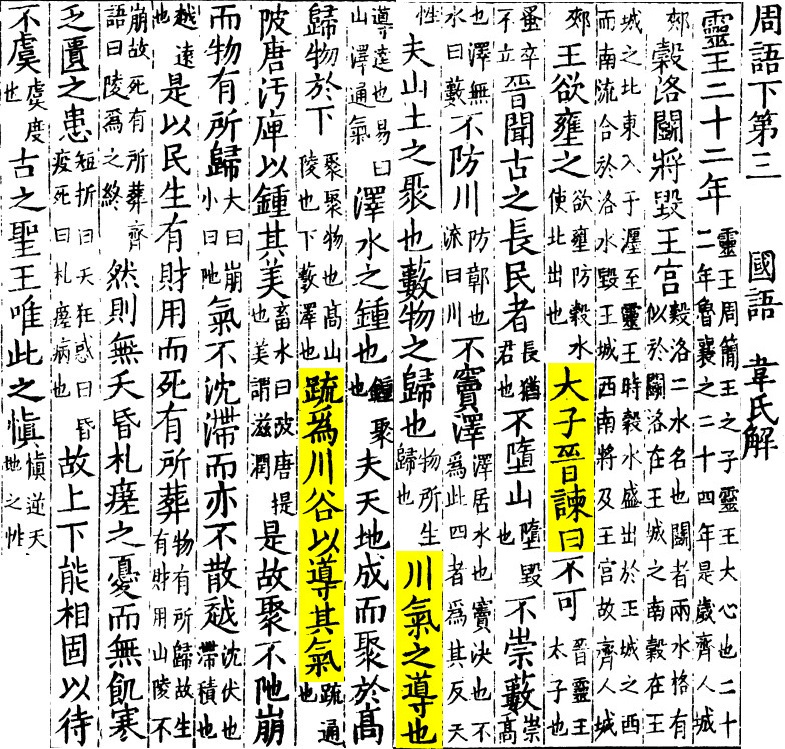 周語下第三　國語　韋氏解
靈王二十二年靈王周簡王之子靈王大心也二十二年魯襄之二十四年是歲齊人城
郟穀洛鬭將毀王宫穀洛二水名也鬭者兩水格有似於鬭洛在王城之南穀在王
城之北東入于瀍至靈王時穀水盛出於王城之西而南流合於洛水毀王城西南將及王宫故齊人城
郟王欲壅之欲壅防穀水使北出也大子晉諫曰不可晉靈王太子也
蚤卒不立晉聞古之長民者長猶君也不墮山墮毀也不崇藪崇髙
也澤無水曰藪不防川防鄣也流曰川不竇澤澤居水也竇決也不為此四者為其反天
性夫山土之聚也藪物之歸也物所生歸也川氣之導也
導達也易曰山澤通氣澤水之鍾也鍾聚也夫天地成而聚於髙
歸物於下聚聚物也髙山陵也下藪澤也疏為川谷以導其氣疏通也
陂唐汚庳以鍾其美畜水曰陂唐提也美謂滋潤是故聚不阤崩
而物有所歸大曰崩小曰阤氣不沈滯而亦不散越沈伏也滯積也
越遠也是以民生有財用而死有所葬物有所歸故生有財用山陵不
崩故死有所葬齊語曰陵為之終然則無夭昏札瘥之憂而無飢寒
乏匱之患短折曰夭狂惑曰昏疫死曰札瘥病也故上下能相固以待
不虞虞度也古之聖王唯此之愼愼逆天地之性